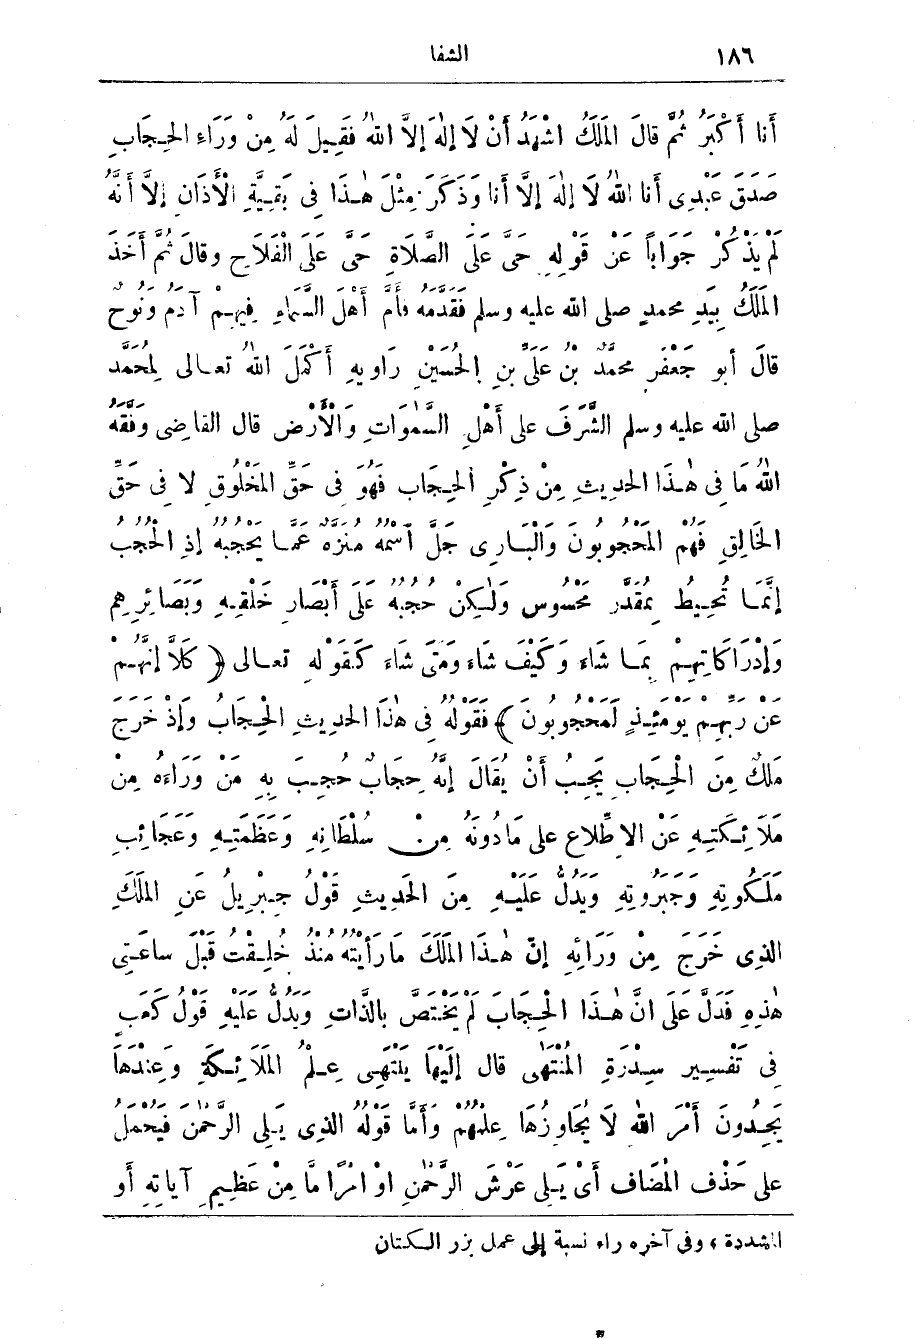 ١٨٦ الشفا
أَنا أَكْبَرُ ثُمَّ قالَ المَلَكُ اشْهَدُ أَنْ لَا إِلٰهَ إِلَّا اللهُ فَقِيلَ لَهُ مِنْ وَرَاءِ الحِجَابِ
صَدَقَ عَبْدِى أَنَا اللهُ لَا إِلٰهَ إِلَّا أَنا وَذَكَرَ مِثْلَ هٰذَا فِى بَقِيَّةِ الْأَذَانِ إِلَّا أَنَّهُ
لَمْ يَذْكُرْ جَوَاباً عَنْ قَوْلِهِ حَىَّ عَلَى الصَّلَاةِ حَىَّ عَلَى الْفَلَاحِ وقالَ ثُمَّ أَخَذَ
المَلَكُ بِيَدِ محمدٍ صلى الله عليه وسلم فَقَدَّمَهُ فأَمَّ أَهْلَ السَّمَاءِ فِيهِمْ آدَمُ وَنُوحٌ
قالَ أبو جَعْفَرٍ محمَّدُ بْنُ عَلِىِّ بنِ الحُسَيْنِ رَاوِيهِ أَكْمَلَ اللهُ تعالى لِمُحَمَّد
صلى الله عليه وسلم الشَّرَفَ على أَهْلِ السَّمٰوَاتِ وَالْأَرْضِ قال القاضى وَفَّقَهُ
اللهُ مَا فى هٰذَا الحديثِ مِنْ ذِكْرِ الحِجَاب فَهُوَ فى حَقِّ المَخْلُوقِ لا فى حَقِّ
الخَالِقِ فَهُمُ المَحْجُوبُونَ وَالْبَارِى جَلَّ اسْمُهُ مُنَزَّهٌ عَمَّا يَحْجُبُهُ إِذِ الْحُجُبُ
إِنَّمَا تُحِيطُ بِمُقَدَّرٍ مَحْسُوسٍ وَلٰكِنْ حُجُبُهُ عَلَى أَبْصَارِ خَلْقِهِ وَبَصَائِرِهِم
وَإِدْرَاكَاتِهِمْ بِمَا شَاءَ وَكَيْفَ شَاءَ وَمَتَى شَاءَ كَقَوْلِهِ تعالى ﴿ كَلَّا إِنَّهُمْ
عَنْ رَبِّهِمْ يَوْمَئِذٍ لَمَحْجُوبُونَ ﴾ فَقَوْلُهُ فى هٰذَا الحديثِ الحِجَابُ وَإِذْ خَرَجَ
مَلَكٌ مِنَ الْحِجَابِ يَجِبُ أَنْ يُقَالَ إِنَّهُ حِجَابٌ حُجِبَ بِهِ مَنْ وَرَاءَهُ مِنْ
مَلَائِكَتِهِ عَنْ الاطِّلاعِ على مَا دُونَهُ مِنْ سُلْطَانِهِ وَعَظَمَتِهِ وَعَجَائِبِ
مَلَكُوتِهِ وَجَبَرُوتِهِ وَيَدُلُّ عَلَيْهِ مِنَ الحَدِيثِ قَوْلُ جِبْرِيلُ عَنِ المَلَكِ
الذِى خَرَجَ مِنْ وَرَائِهِ إِنّ هٰذَا المَلَكَ مَا رَأَيْتُهُ مُنْذُ خُلِقْتُ قَبْلَ ساعَتِى
هٰذِهِ فَدَلَّ عَلَى انَّ هٰذَا الْحِجَابَ لَمْ يَخْتَصَّ بالذَّاتِ وَيَدُلُّ عَلَيْهِ قَوْلُ كَعْبٍ
فى تَفْسِيرِ سِدْرَةِ الْمُنْتَهٰى قال إِلَيْهَا يَنْتَهِى عِلْمُ المَلَائِكَةِ وَعِنْدَهَا
يَجِدُونَ أَمْرَ اللهِ لَا يُجَاوِزُهَا عِلْمُهُمْ وَأَمَّا قَوْلُهُ الذى يَلِى الرَّحْمٰنَ فَيُحْمَلُ
على حَذْفِ الْمُضَافِ أَىْ يَلِى عَرْشَ الرَّحْمٰنِ اوْ امْرًا مَّا مِنْ عَظِيمِ آيَاتِهِ أَو
المشددة ، وفى آخره راء نسبة إلى عمل بزر الكتان